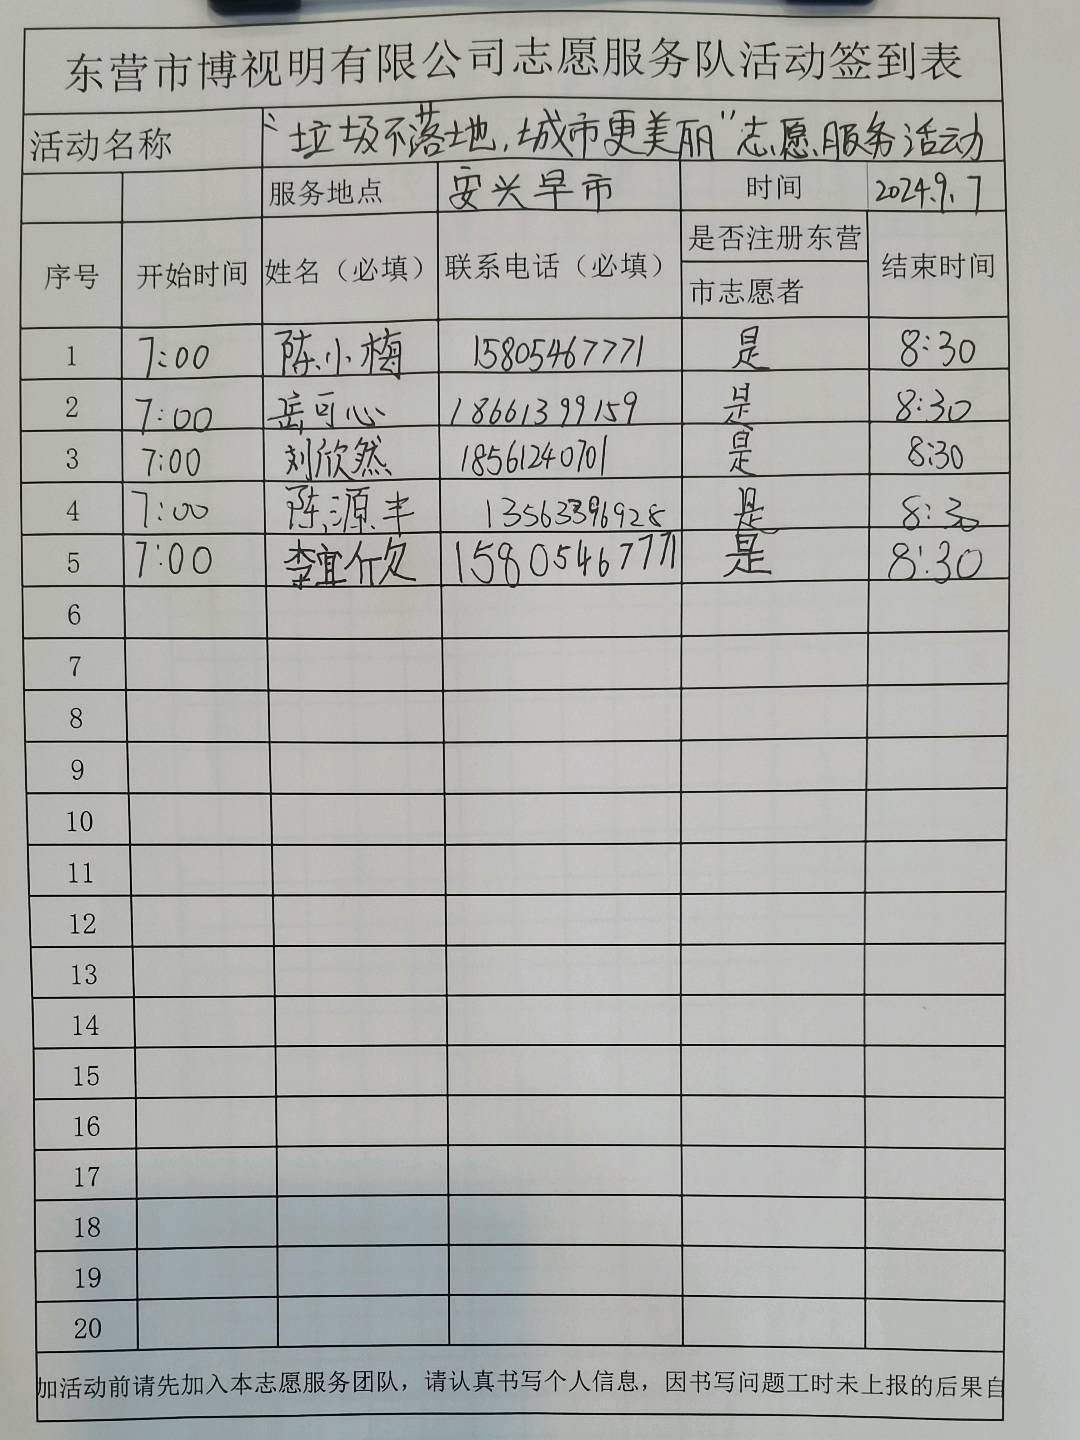 东营市博视明有限公司志愿服务队活动签到表
活动名称 “垃圾不落地,城市更美丽”志愿服务活动
服务地点 安兴早市 时间 2024.9.7
序号 开始时间 姓名（必填） 联系电话（必填） 是否注册东营市志愿者 结束时间
1 7:00 陈小梅 15805467771 是 8:30
2 7:00 岳可心 18661399159 是 8:30
3 7:00 刘欣然 18561240701 是 8:30
4 7:00 陈源丰 13563396928 是 8:30
5 7:00 李宜忻 15805467771 是 8:30
6
7
8
9
10
11
12
13
14
15
16
17
18
19
20
加活动前请先加入本志愿服务团队，请认真书写个人信息，因书写问题工时未上报的后果自